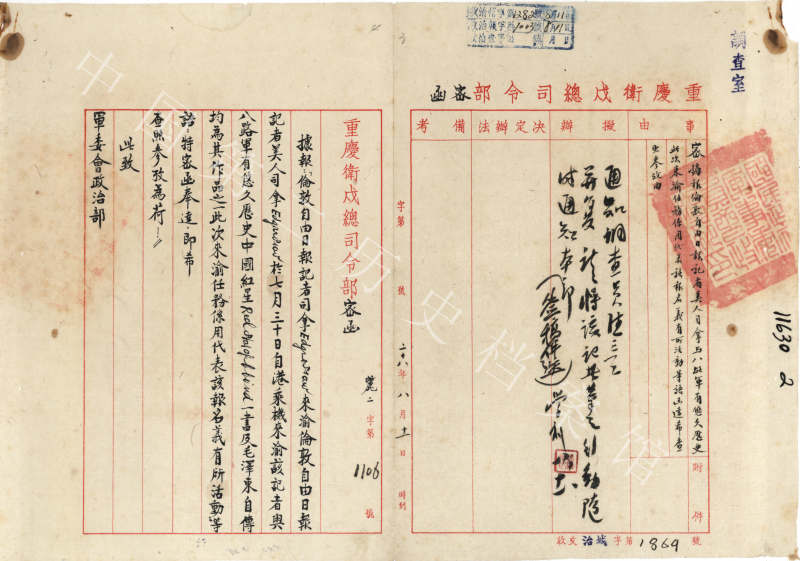 調查室
重慶衛戍總司令部密函
事由
擬辦
決定辦法
備考
密據報倫敦自由日報記者美人司拿與八路軍有悠久歷史
此次來渝任務係用代表該報名義有所活動等語函達希查
照參攷由
附件
通知調查員注意
并复該將該記者之行動隨
時通知本部
收文 治城字第1869號
11630 2
重慶衛戍總司令部密函
字第 號
二十八年八月十一日 時刻
二字第1106號
據報「倫敦自由日報記者司拿Edgar Snow來渝倫敦自由日報
記者美人司拿Edgar Snow於七月三十日自港乘機來渝該記者與
八路軍有悠久歷史中國紅星Red Star of China一書及毛澤東自傳
均為其作品之一此次來渝任務係用代表該報名義有所活動」等
語特密函奉達即希
查照參攷為荷
此致
軍委會政治部
中國第二历史档案馆